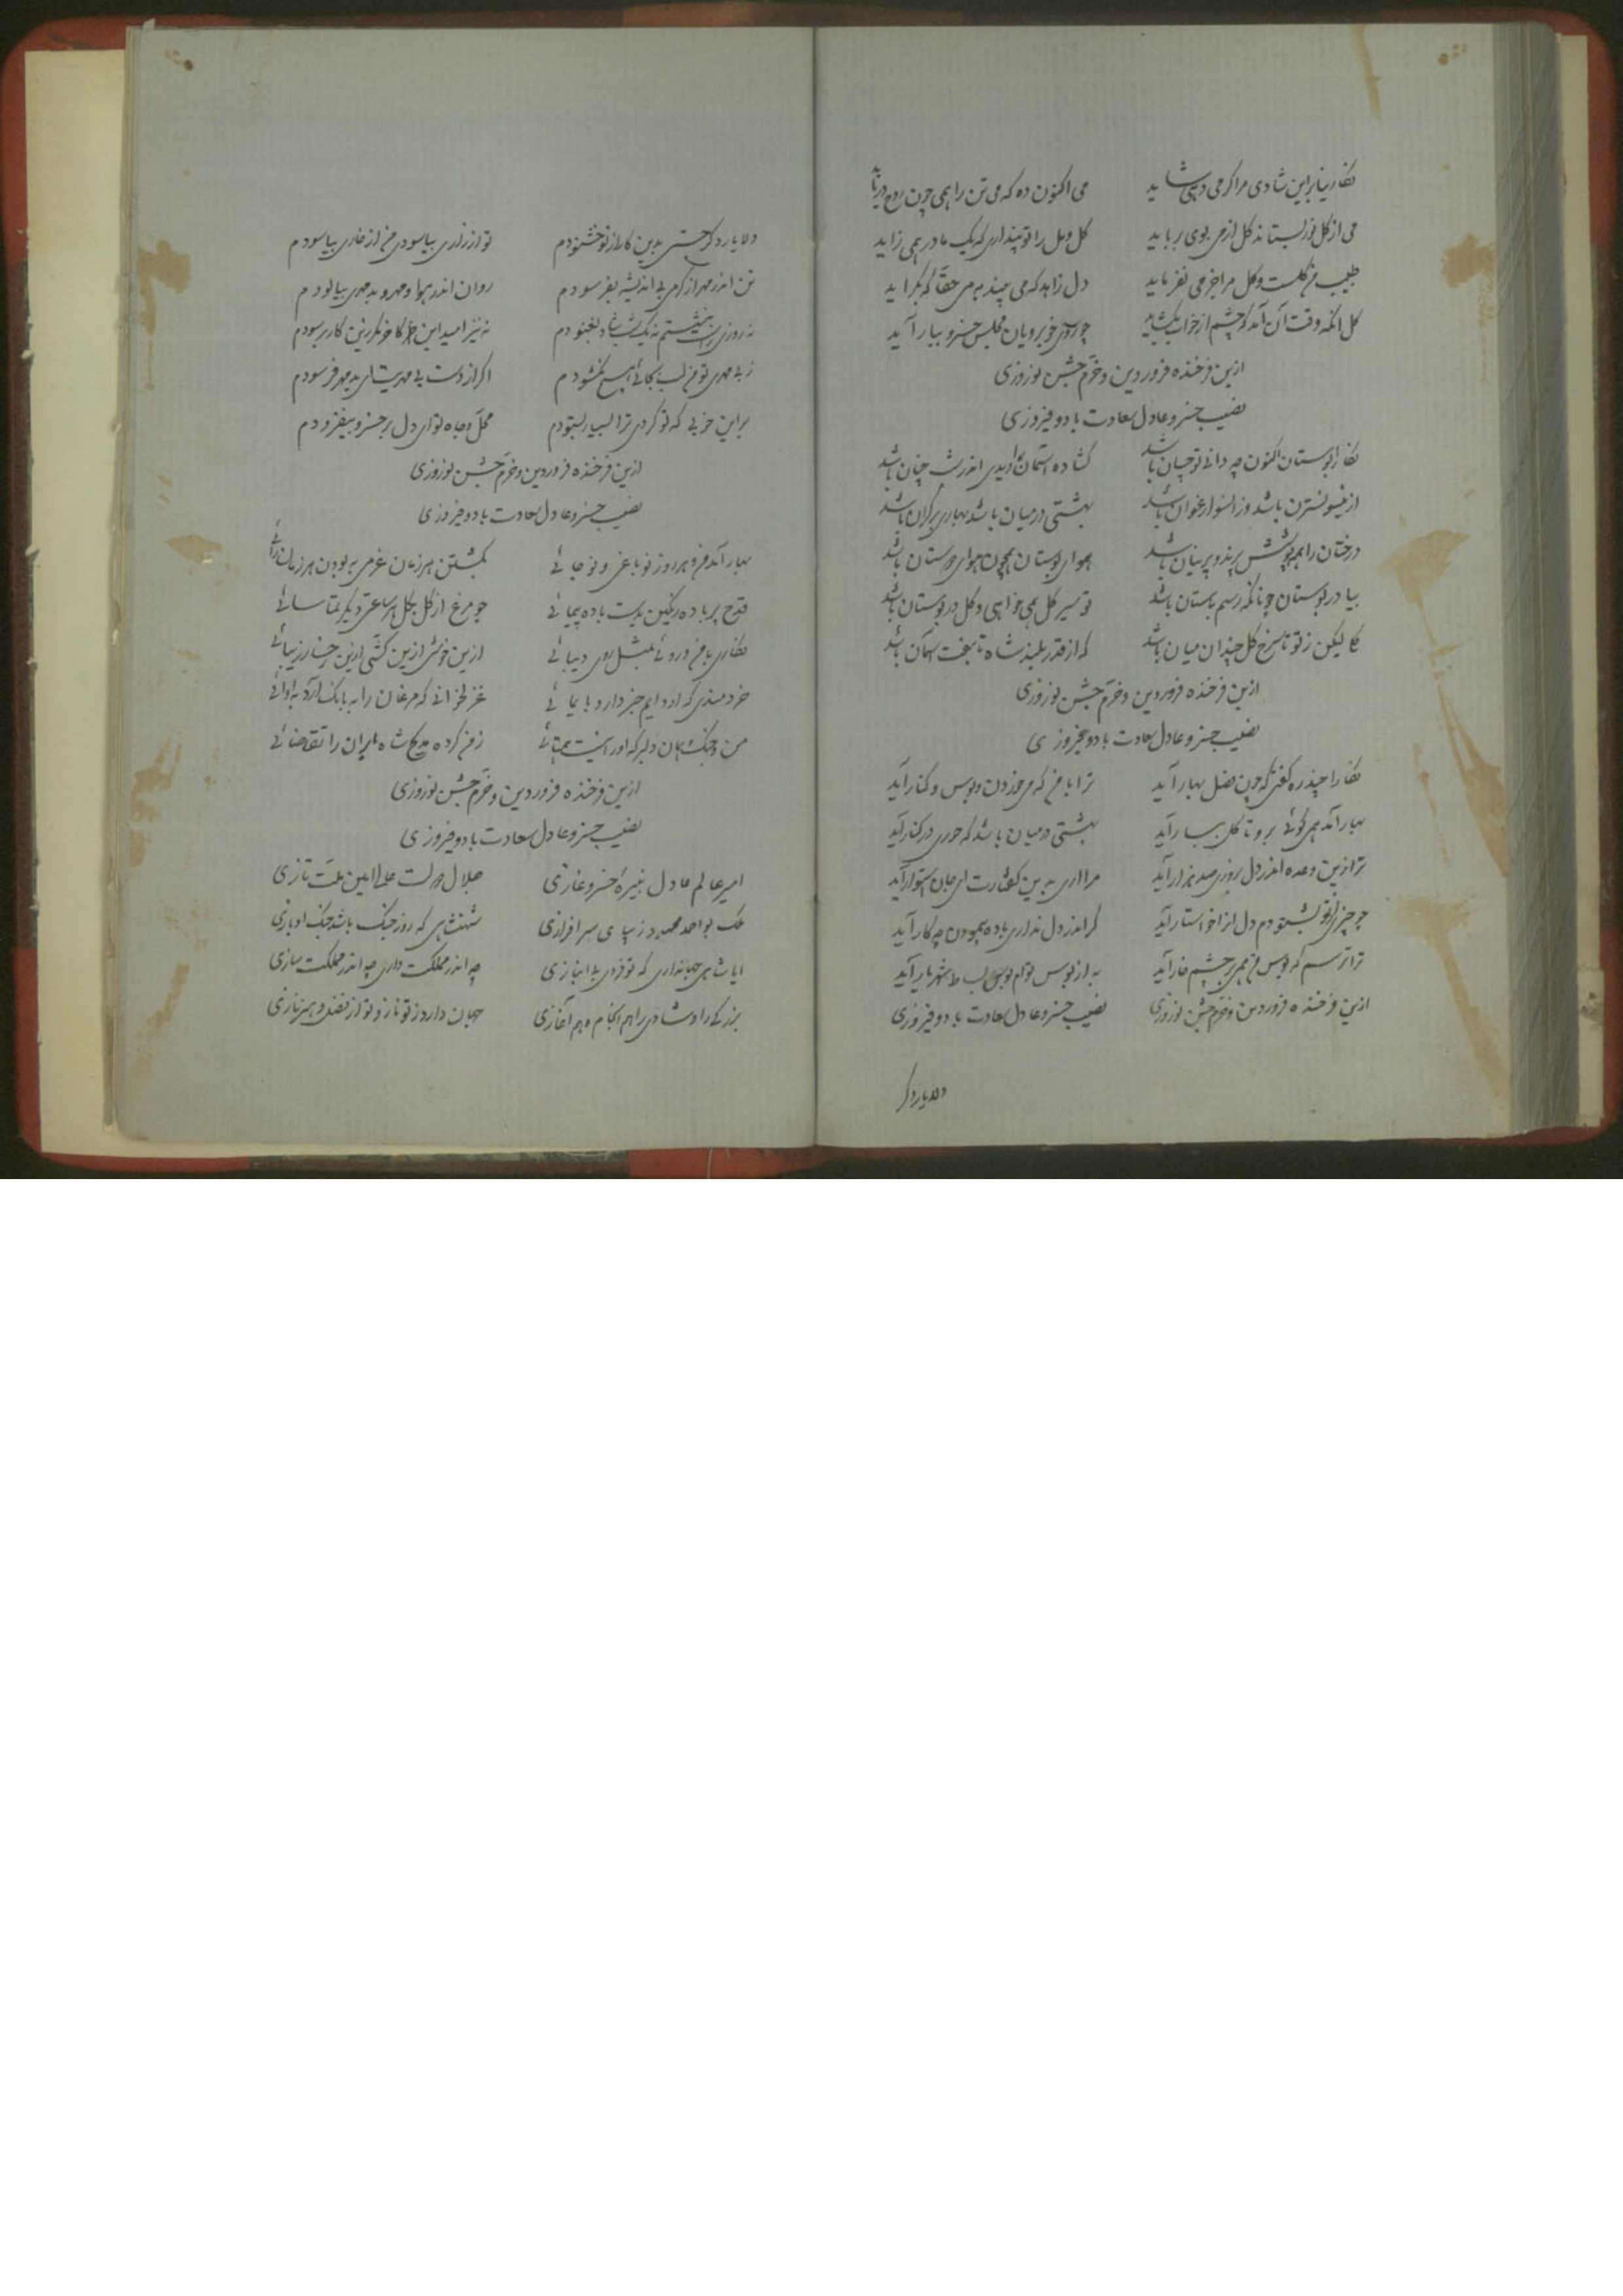 نگارینا بر این شادی مرا گر می دهی شاید می اکنون ده که می تن را همی چون روح
می از گل نور بستاند گل از می بوی برباید گل و مل را تو پنداری که یک مادر همی زاید
طبیب من گلست و گل مرا جز می نفرماید دل زاهد که می بیند به می حقا که بگراید
گل آنگه وقت آن آمد که چشم از خواب بگشاید چو روی خوبرویان مجلس خسرو بیاراید
ازین فرخنده فروردین و خرم جشن نوروزی
نصیب خسرو عادل سعادت باد و فیروزی
نگارا بوستان اکنون چه دانی تو چسان باشد گشاده آسمان دیدی اندر شب چنان باشد
ازینسو نسترن باشد وزانسو ارغوان باشد بهشتی در میان باشد بهاری بر کران باشد
درختان را همه پوشش پرند و پرنیان باشد هوای بوستان همچون هوای دوستان باشد
بیا در بوستان چونانکه رسم باستان باشد تو سیر گل همی خواهی و گل در بوستان باشد
لیکن ز تو تا سرخ گل چندان میان باشد که از قدر بلند شاه تا هفت آسمان باشد
ازین فرخنده فروردین و خرم جشن نوروزی
نصیب خسرو عادل سعادت باد و فیروزی
نگارا چند ره گفتی که چون فصل بهار آید ترا با من که می خوردن و بوس و کنار آید
بهار آمد همی گوئی برو تا گل ببار آید بهشتی در میان باشد که حوری در کنار آید
ترا زین وعده اندر دل روزی صد هزار آید مرا داری بدین گفتارت ای جان استوار آید
چو چیزی از تو بشنودم دل از خواستار آید گر اندر دل نداری باده پیمودن چه کار آید
ترا ترسم که بوس من همی بر چشم خار آید به از بوس توام بوس بساط شهریار آید
ازین فرخنده فروردین و خرم جشن نوروزی نصیب خسرو عادل سعادت باد و فیروزی
دلا یارد گر
دلا یارد گر جستی بدین کار از تو خشنودم تو از زاری بیاسودی من از خاری بیاسودم
تن اندر مهر از گرمی بی اندیشه بفرسودم روان اندر هوا و مهر و بدمهری بیالودم
نه روزی بنشستم نه یک شب شاد بغنودم نه نیز امید این کاخر بکردین کار بر سودم
ز بی مهری تو من لب بجائی هیچ نگشودم اگر از دست بی مهریت ای بدمهر فرسودم
براین خوبی که تو کردی ترا بسیار بستودم محل و جاه تو ای دل بر خسرو بیفزودم
ازین فرخنده فروردین و خرم جشن نوروزی
نصیب خسرو عادل سعادت باد و فیروزی
بهار آمد من و هر روز نو باغی و نو جائی بگشتن هر زمان عزمی به بودن هر زمان رائی
قدح پر باده رنگین بدست باده پیمائی چو مرغ از گل بگل هر ساعتی دیگر تماشائی
نگاری با من و روئی بمثل روی دیبائی ازین خوشی ازین کشی ازین رخسار زیبائی
خردمندی که از دایم خبر دارد بایمائی غزلخوانی که مرغان را به بانگ آرد به آوائی
من و چنگ و آن دلبر که او را نیست همتائی ز من کرده مدح شاه ایران را تقاضائی
ازین فرخنده فروردین و خرم جشن نوروزی
نصیب خسرو عادل سعادت باد و فیروزی
امیر عالم عادل نبیره خسرو غازی جلال دولت عالی امین ملت تازی
ملک بو احمد محمود زیبای سرافرازی شهنشاهی که روز جنگ باشد جنگ او بازی
ایا شاهی جهانداری که تو فردی بی انبازی چه اندر مملکت داری چه اندر مملکت سازی
بزرگی را و شادی را هم انجام و هم آغازی جهان دارد ز تو ناز و تو از فضل و هنر نازی